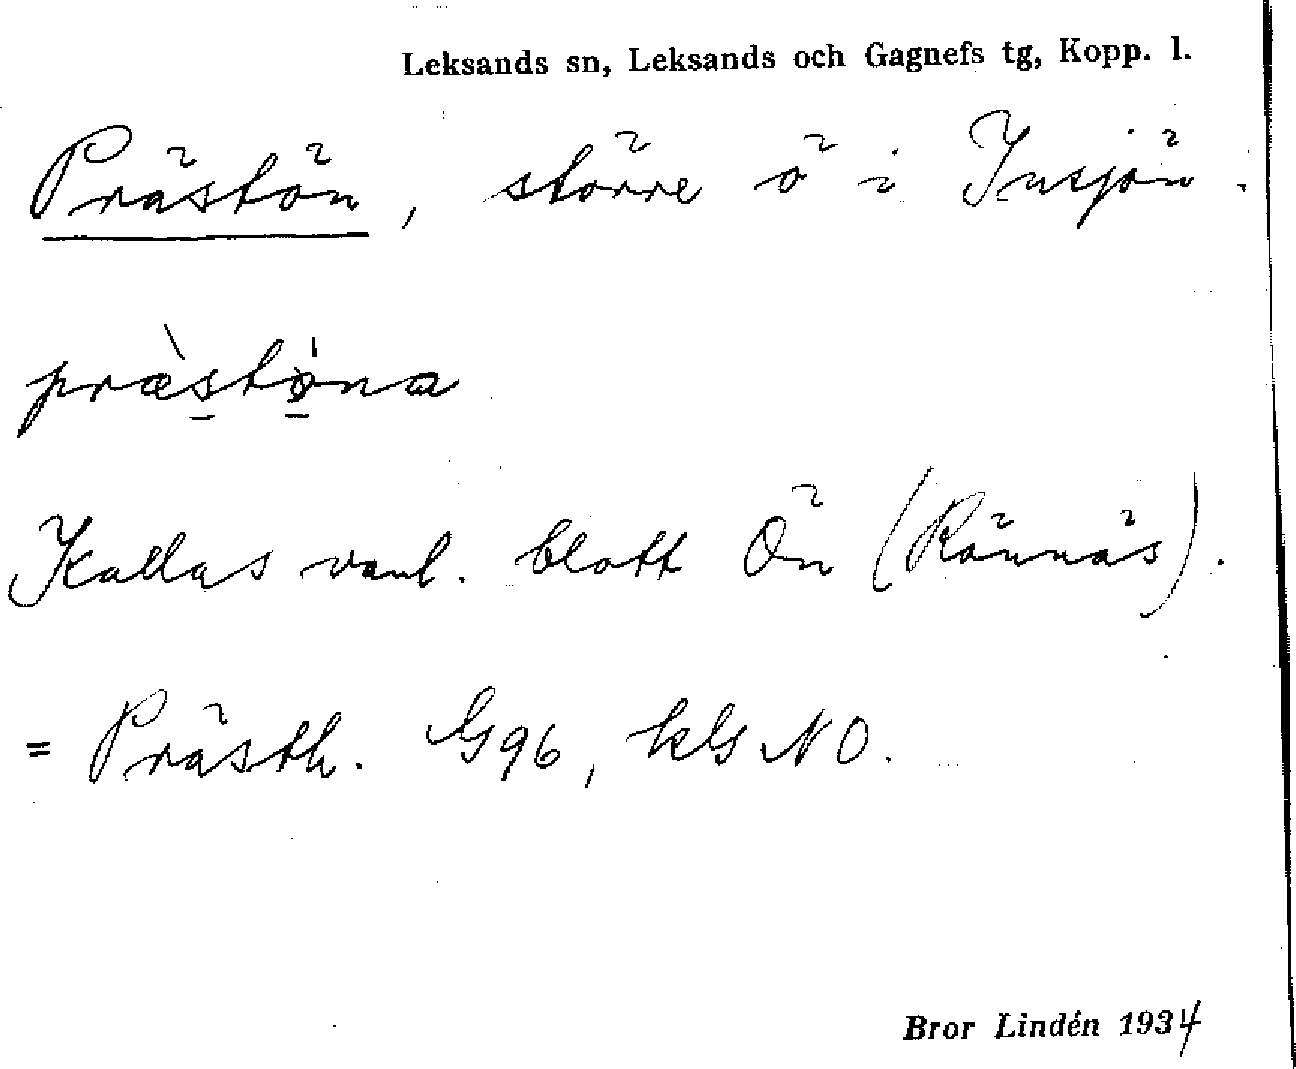 Leksands sn, Leksands och Gagnefs tg, Kopp. l.
Prästön, större ö i Insjön.
præ̀stö̀na
Kallas vanl. blott Ön (Rönnäs).
= Prästh. G96, kG NO.
Bror Lindén 1934